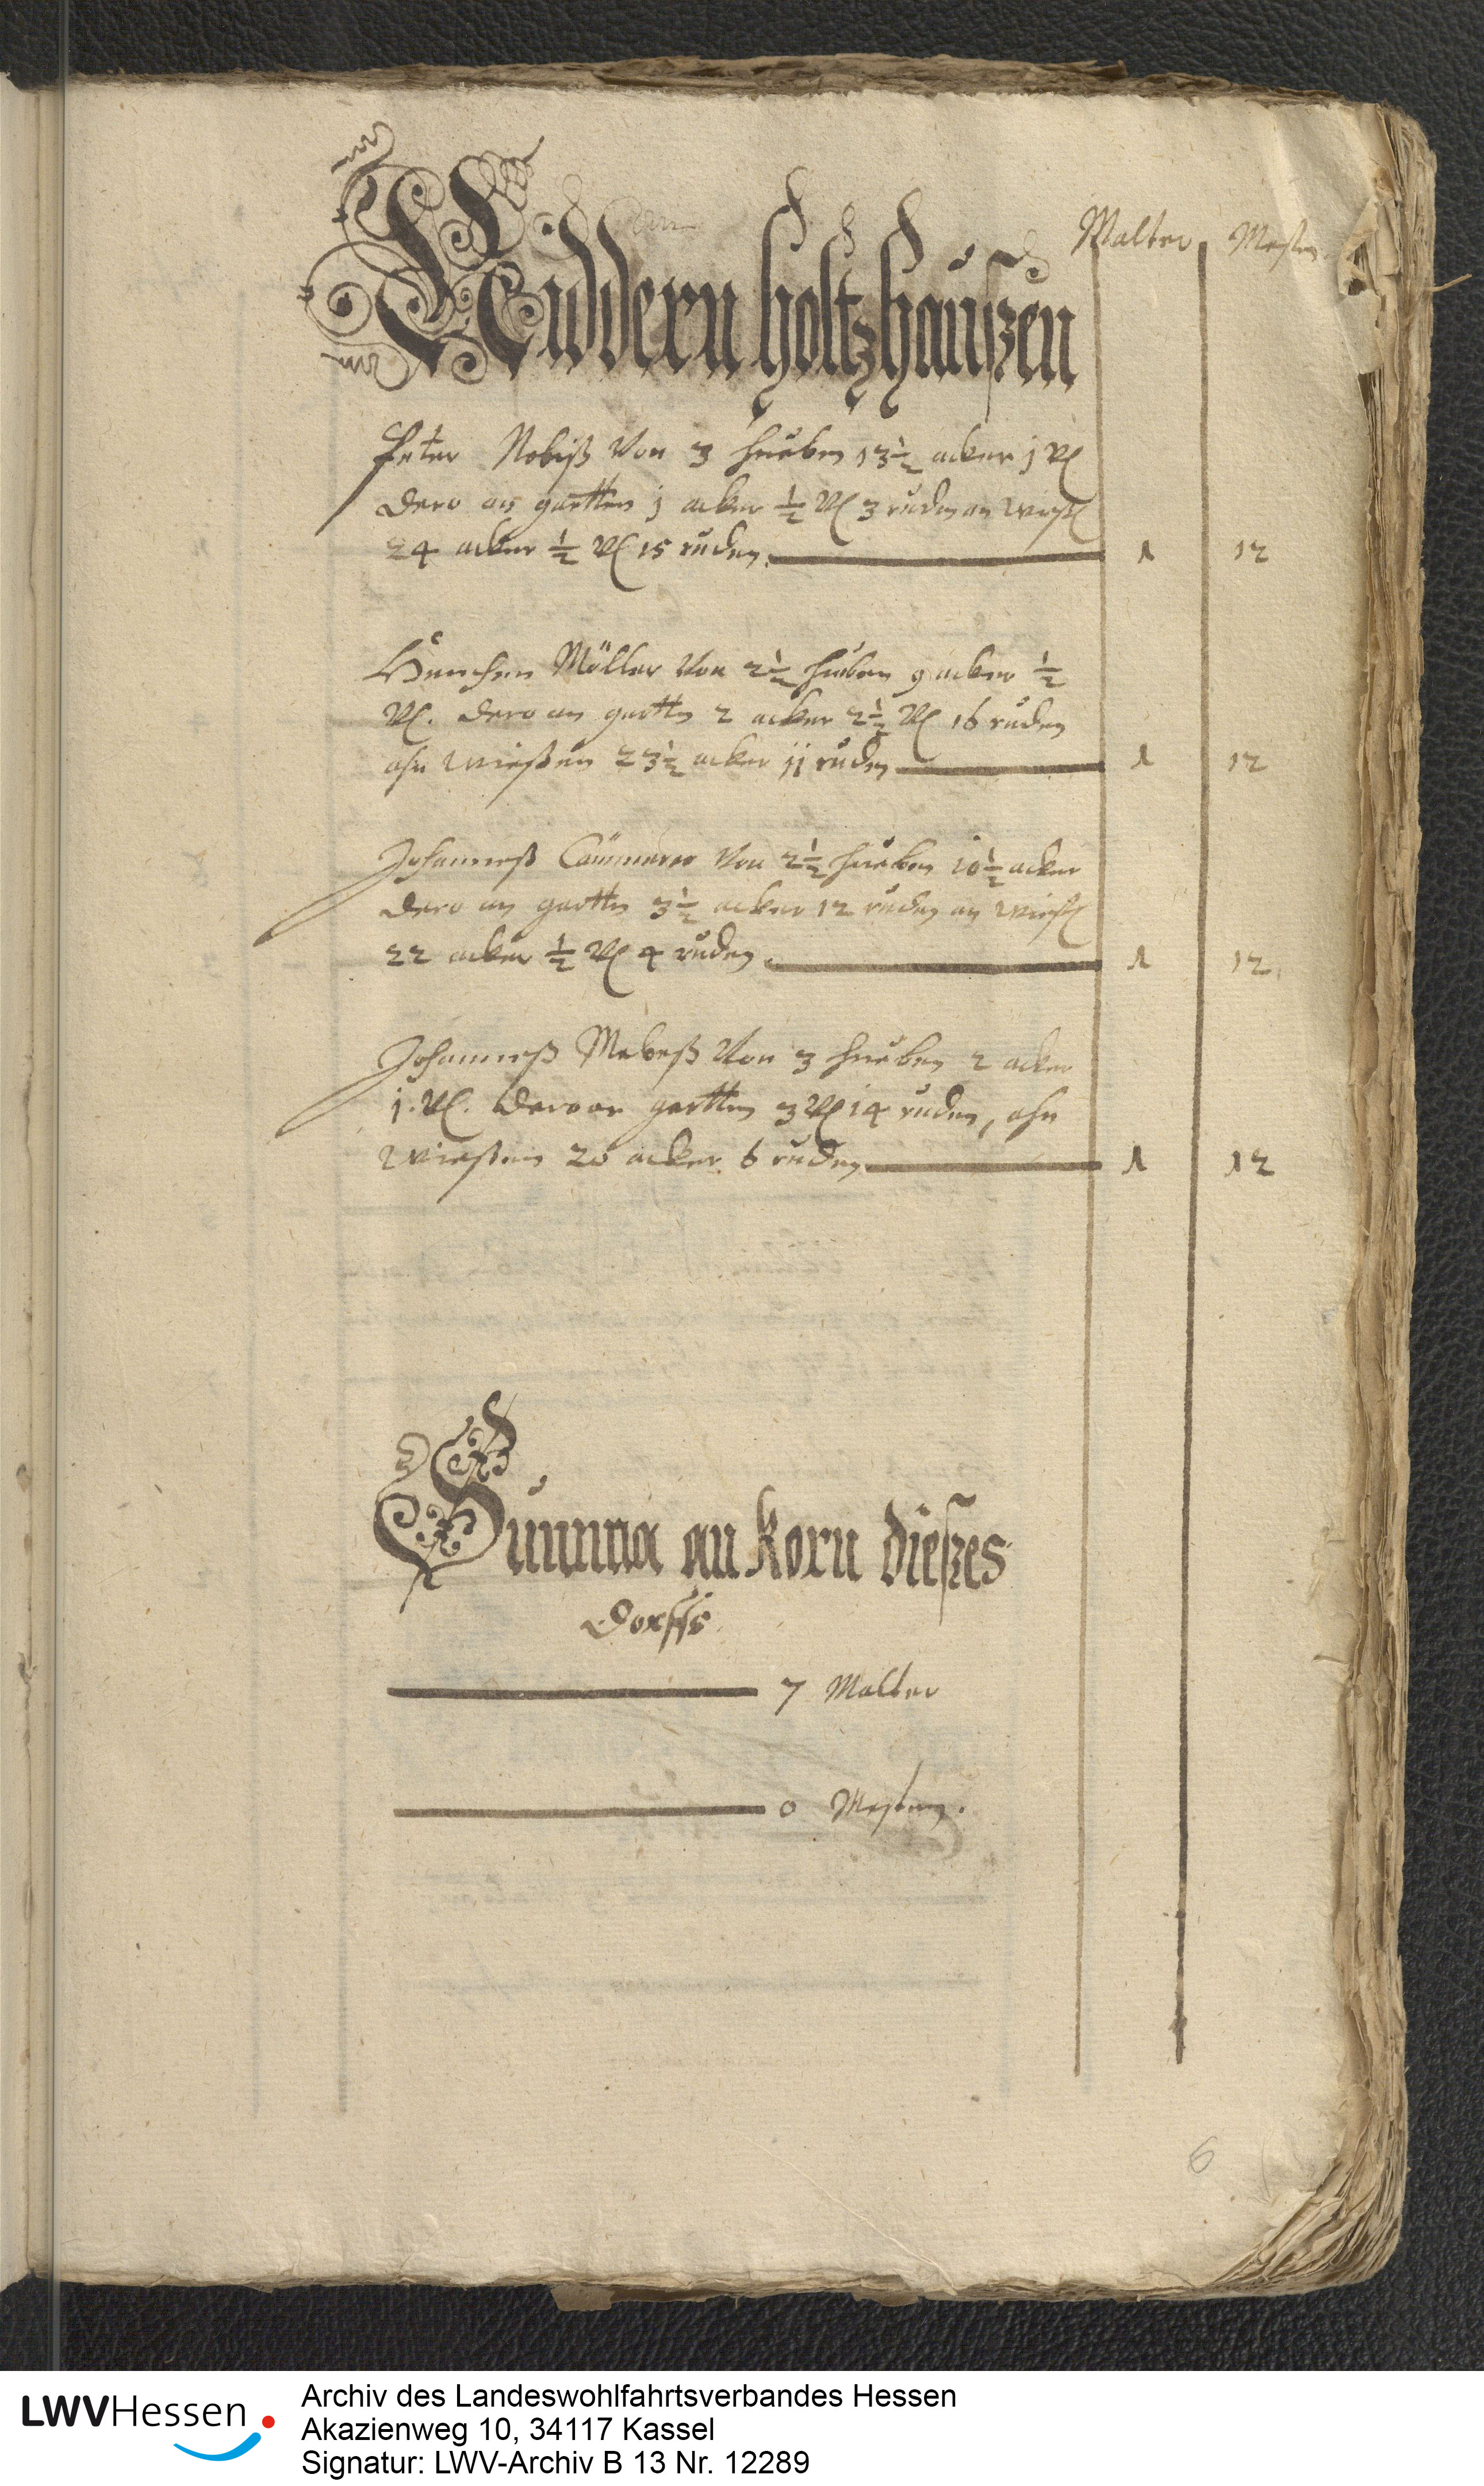 Malter Mesten
Niddern holtzhaußen
Peter Nobiß Von 3 hueben 13½ acker j Vl
dero an gartten j acker ½ Vl 3 ruden an wieß
24 acker ½ Vl 15 ruden. 1 12
Henchen Möller Von 2½ huben 9 acker ½
Vl. dero an gartten 2 acker 2½ Vl 16 ruden
ahn wießen 23½ acker jj ruden 1 12
Johanneß Cammerer Von 2½ hueben 10½ acker
dero an gartten 3½ acker 12 ruden an wieß
22 acker ½ Vl 4 ruden. 1 12
Johanneß Mebeß Von 3 hueben 2 acker
j. Vl. dero an gartten 3 Vl 14 ruden, ahn
wießen 20 acker 6 ruden 1 12
Summa an korn dießes
Dorffs
7 Malter
0 Mesten.
6
LWVHessen
Archiv des Landeswohlfahrtsverbandes Hessen
Akazienweg 10, 34117 Kassel
Signatur: LWV-Archiv B 13 Nr. 12289